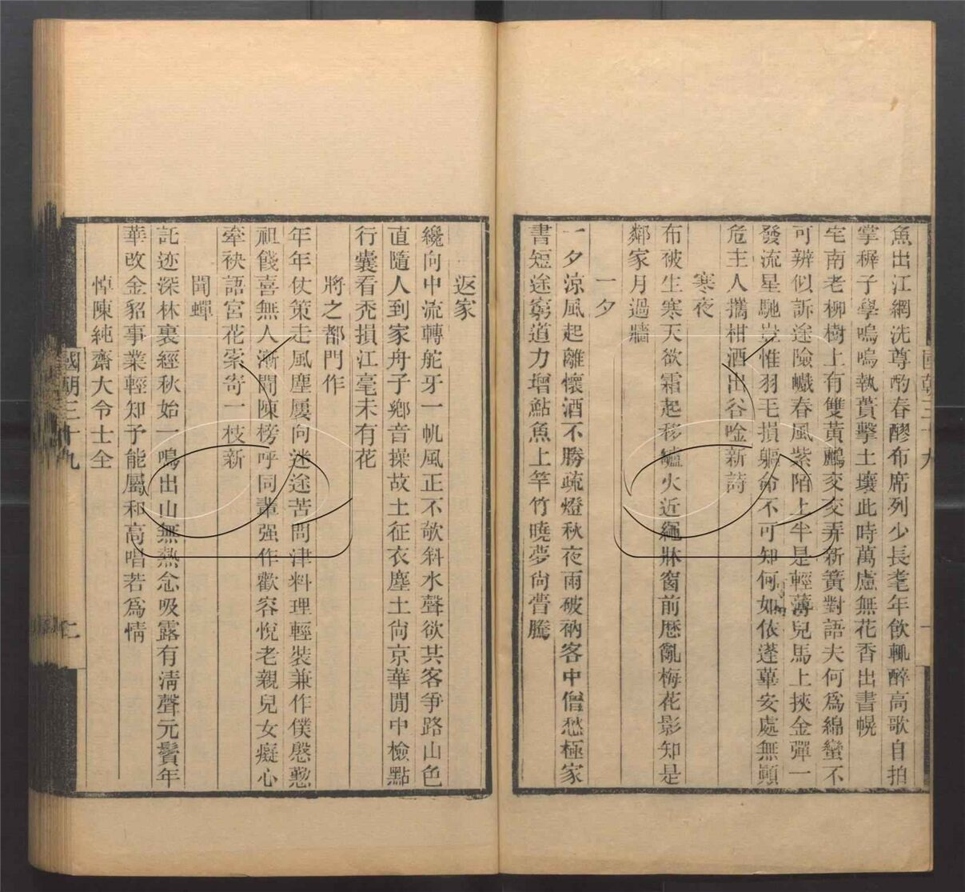 魚出江網洗尊酌春醪布席列少長耄年飲輒醉高歌自拍
掌穉子學嗚嗚執蕢擊土壤此時萬慮無花香出書幌
宅南老柳樹上有雙黃鸝交交弄新簧對語夫何爲綿蠻不
可辨似訴途險巇春風紫陌上半是輕薄兒馬上挾金彈一
發流星馳豈惟羽毛損軀命不可知何如依蓬蓽安處無顛
危主人攜柑酒出谷唫新詩
寒夜
布被生寒天欲霜起移爐火近繩牀窗前歷亂梅花影知是
鄰家月過牆
一夕
一夕涼風起離懷酒不勝疏燈秋夜雨破衲客中僧愁極家
書短途窮道力增鮎魚上竿竹曉夢尙瞢騰
國朝三十九
一
返家
纔向中流轉舵牙一帆風正不欹斜水聲欲共客爭路山色
直隨人到家舟子鄉音操故土征衣塵土尙京華閒中檢點
行囊看禿損江毫未有花
將之都門作
年年仗策走風塵屢向迷途苦問津料理輕裝兼作僕慇懃
祖餞喜無人漸問陳榜呼同輩强作歡容悅老親兒女癡心
牽袂語宮花索寄一枝新
聞蟬
託迹深林裏經秋始一鳴出山無熱念吸露有淸聲元鬢年
華改金貂事業輕知予能屬和高唱若爲情
悼陳純齋大令士全
國朝三十九
二